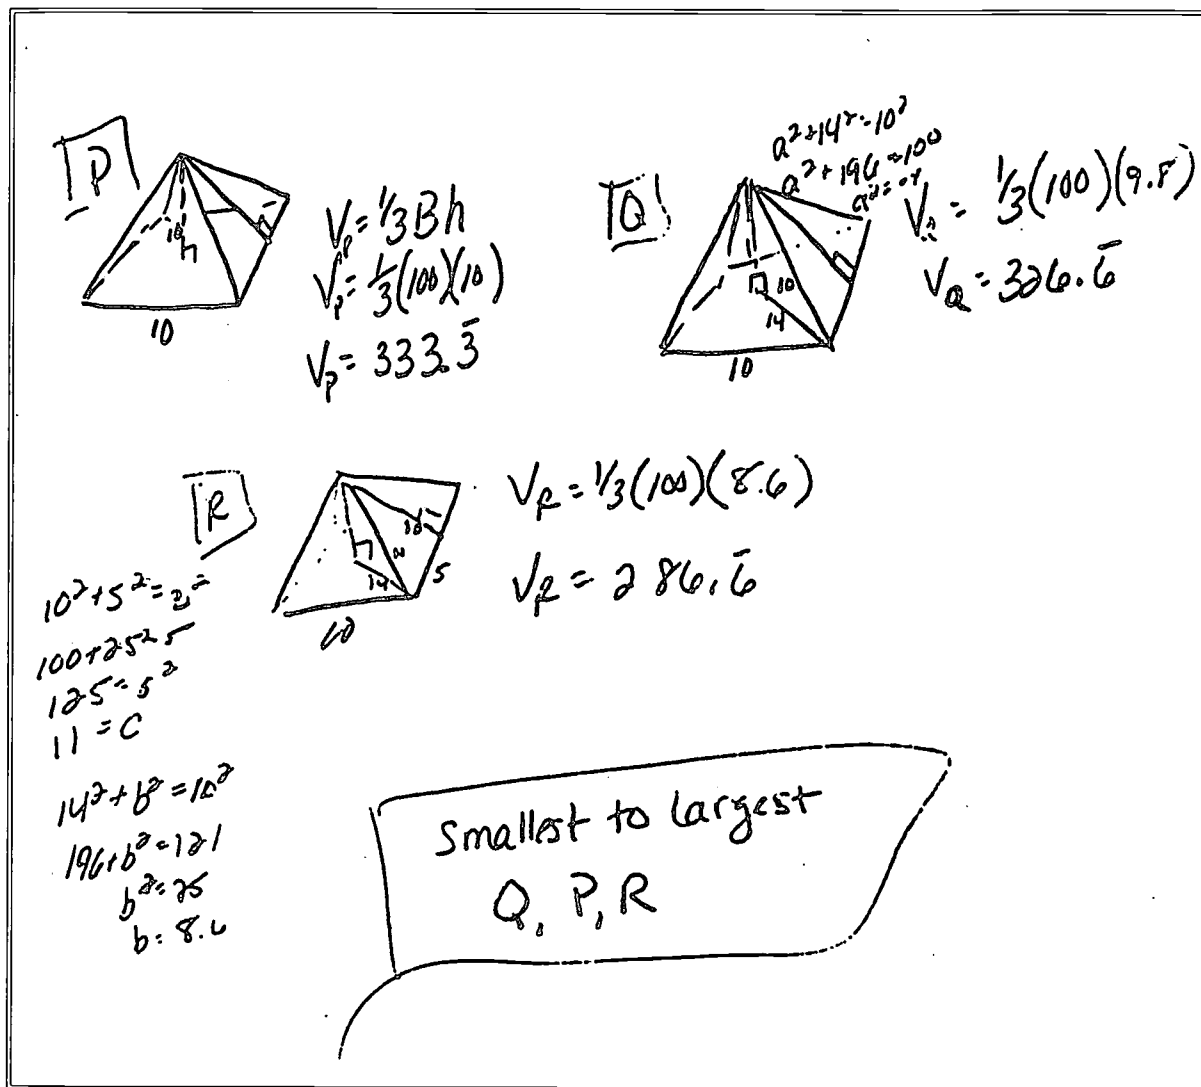 P
10
h
10
V_P = 1/3 Bh
V_P = 1/3 (100)(10)
V_P = 333.3̅
Q
a² + 14² = 10²
a² + 196 = 100
10
14
10
V = 1/3 (100)(9.8)
V_Q = 326.6̅
R
10
14
5
10
V_R = 1/3 (100)(8.6)
V_R = 286.6̅
10² + 5² =
125 =
11 = C
14² + b² = 10²
196 + b² = 121
b² = 25
b = 8.6
Smallest to largest
Q, P, R